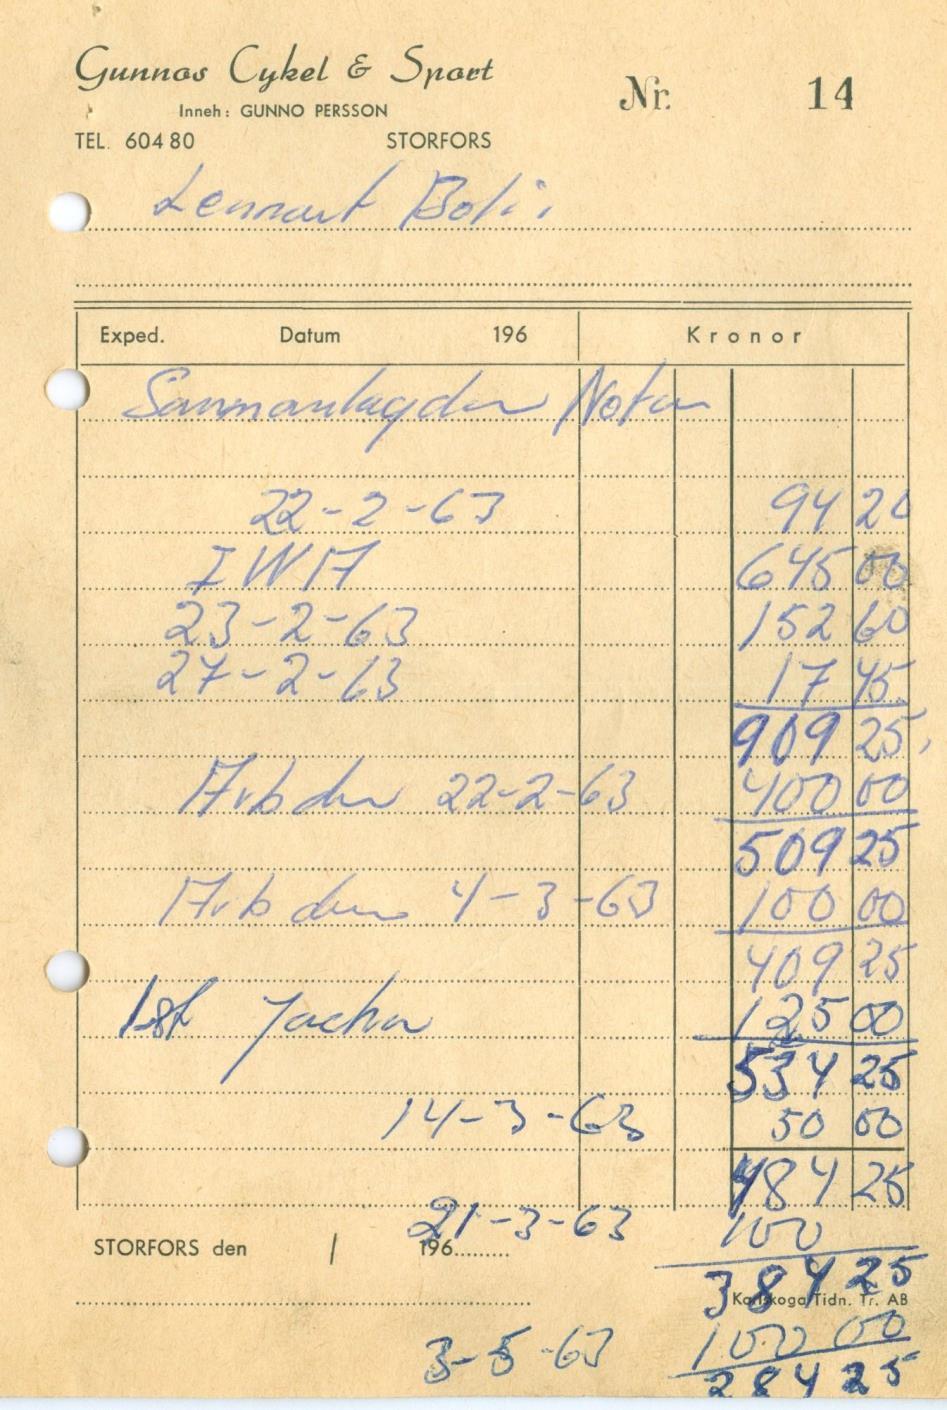 Gunnos Cykel & Sport
Nr. 14
Inneh: GUNNO PERSSON
TEL. 604 80 STORFORS
Lennart
Exped. Datum 196 Kronor
Sammanlagda Notor
22-2-63 94 20
645 00
23-2-63 152 60
27-2-63 17 45
909 25
22-2-63 400 00
509 25
4-3-63 100 00
409 25
1 st 125 00
534 25
14-3-63 50 00
484 25
21-3-63 100
STORFORS den / 196
384 25
Karlskoga Tidn. Tr. AB
3-5-63 100 00
284 25